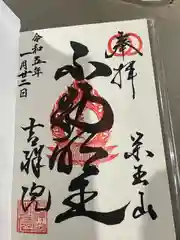 奉拝
不動明王
令和五年
一月廿二日
吉祥院